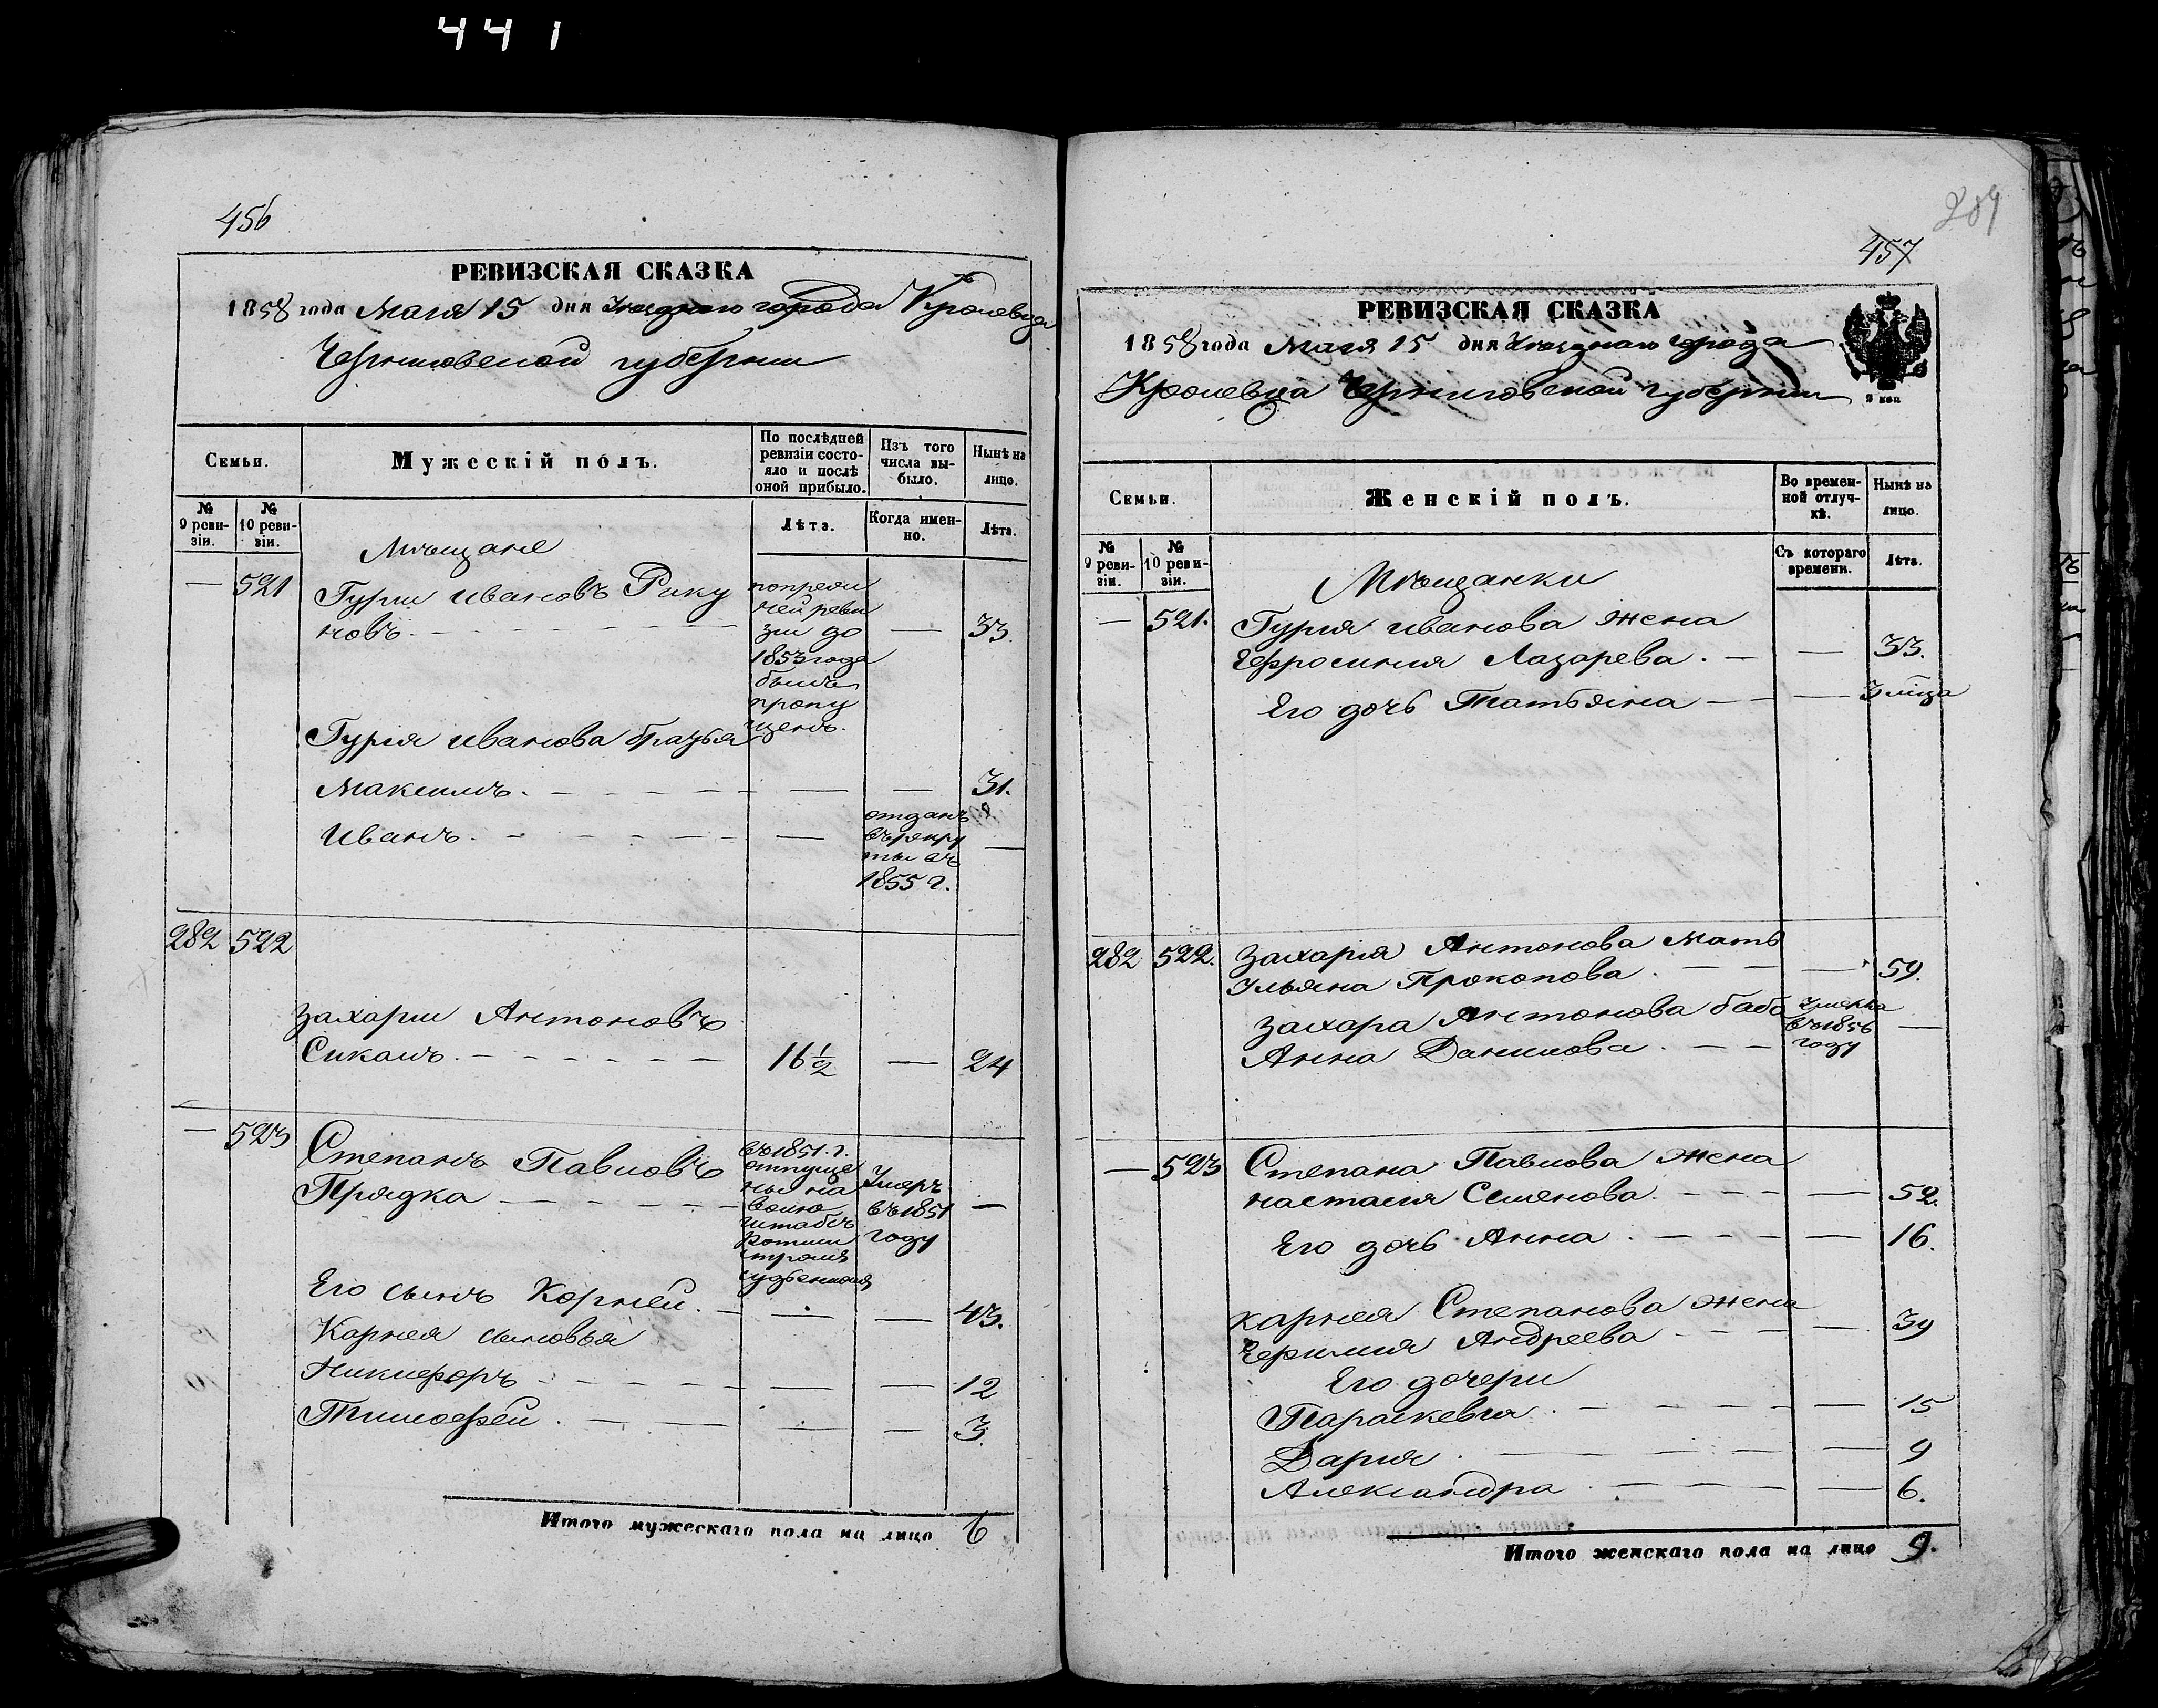 441
456
РЕВИЗСКАЯ СКАЗКА
1858 года Маия 15 дня Уезднаго города Кролевца
Черниговской губернии
Семьи.
Мужескій полъ.
По послѣдней ревизіи состояло и послѣ оной прибыло.
Изъ того числа выбыло.
Нынѣ на лицо.
№ 9 ревизіи.
№ 10 ревизіи.
Лѣта.
Когда именно.
Лѣта.
Мѣщане
— 521 Гурии Ивановъ Рику
новъ. — 33.
попреди
чей реви
зии до
1853 года
былъ
пропу
щенъ.
Гурия Иванова братья
Максимъ. — — 31.
Иванъ. — —
отданъ
въ рекру
ты въ
1855 г.
282 522
Захарии Антоновъ
Сикачъ. 16 1/2 — 24
— 523 Степанъ Павловъ
Прядка —
въ 1851. г.
отпуще
ны на
волю
штабсъ
Ротми
стромъ
Умеръ
въ 1851
году
Его сынъ Корней. — — 43.
Корнея сыновья
Никифоръ — — 12
Тимофей. — — 3.
Итого мужескаго пола на лицо 6
289
457
РЕВИЗСКАЯ СКАЗКА
1858 года Маия 15 дня Уезднаго города
Кролевца Черниговской губернии
Семьи.
Женскій полъ.
Во временной отлучкѣ.
Нынѣ на лицо.
№ 9 ревизіи.
№ 10 ревизіи.
Съ котораго времени.
Лѣта.
Мѣщанки
— 521. Гурия Иванова жена
Ефросиния Лазарева. — — 33.
Его дочь Татьяна — — 3 мѣца
282 522. Захария Антонова мать
Ульяна Прокопова. — — 59.
Захара Антонова баба
Анна Данилова. —
Умерла
въ 1856
году
— 523 Степана Павлова жена
Настасия Семенова. — — 52.
Его дочь Анна. — — 16.
Карнея Степанова жена
Ефимия Андреева — — 39
Его дочери
Параскевия. — — 15
Дария. — — 9
Александра. — — 6.
Итого женскаго пола на лицо 9.